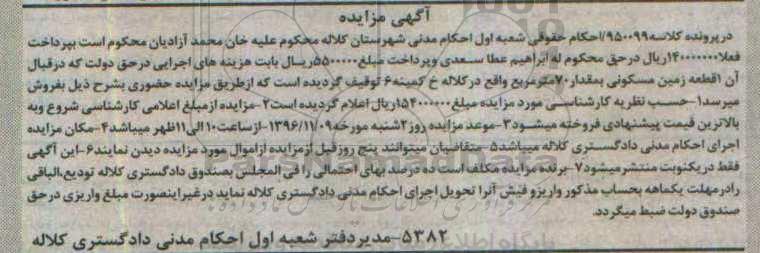 آگهی مزایده
درپرونده کلاسه۹۵۰۰۹۹/احکام حقوقی شعبه اول احکام مدنی شهرستان کلاله محکوم علیه خان محمد آزادیان محکوم است بپرداخت
فعلا۱۴۰۰۰۰۰۰۰ریال درحق محکوم له ابراهیم عطا سعدی وپرداخت مبلغ۵۵۰۰۰۰۰ریال بابت هزینه های اجرایی درحق دولت که درقبال
آن ۱قطعه زمین مسکونی بمقدار۷۰مترمربع واقع درکلاله خ کمینه۶ توقیف گردیده است که ازطریق مزایده حضوری بشرح ذیل بفروش
میرسد۱-حسب نظریه کارشناسی مورد مزایده مبلغ۱۵۴۰۰۰۰۰۰ریال اعلام گردیده است۲-مزایده ازمبلغ اعلامی کارشناسی شروع وبه
بالاترین قیمت پیشنهادی فروخته میشود۳-موعد مزایده روز۲شنبه مورخه۱۳۹۶/۱۱/۰۹-ازساعت۱۰الی۱۱ظهر میباشد۴-مکان مزایده
اجرای احکام مدنی دادگستری کلاله میباشد۵-متقاضیان میتوانند پنج روزقبل ازمزایده ازاموال مورد مزایده دیدن نمایند۶-این آگهی
فقط دریکنوبت منتشرمیشود۷-برنده مزایده مکلف است ده درصد بهای احتمالی رافی المجلس بصندوق دادگستری کلاله تودیع،الباقی
رادرمهلت یکماهه بحساب مذکور واریزو فیش آنرا تحویل اجرای احکام مدنی دادگستری کلاله نماید درغیراینصورت مبلغ واریزی درحق
صندوق دولت ضبط میگردد.
۵۳۸۲-مدیردفتر شعبه اول احکام مدنی دادگستری کلاله
ParsNamadData